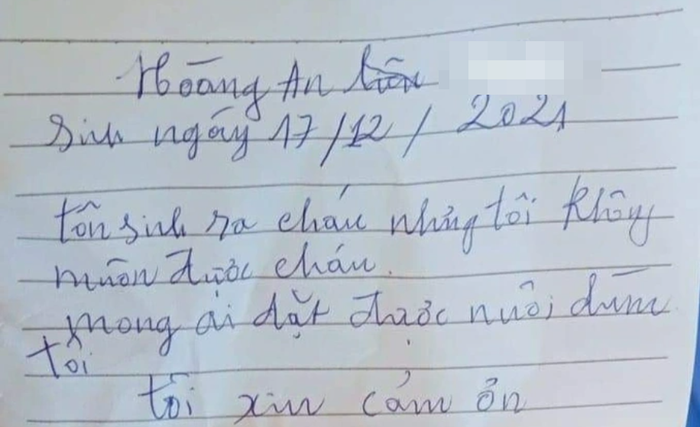 Hoàng An
Sinh ngáy 17/12/2021
tôi sinh ra cháu nhưng tôi không
muôn được cháu.
mong ai dặt được nuôi dùm
tôi
tôi xin cảm ơn